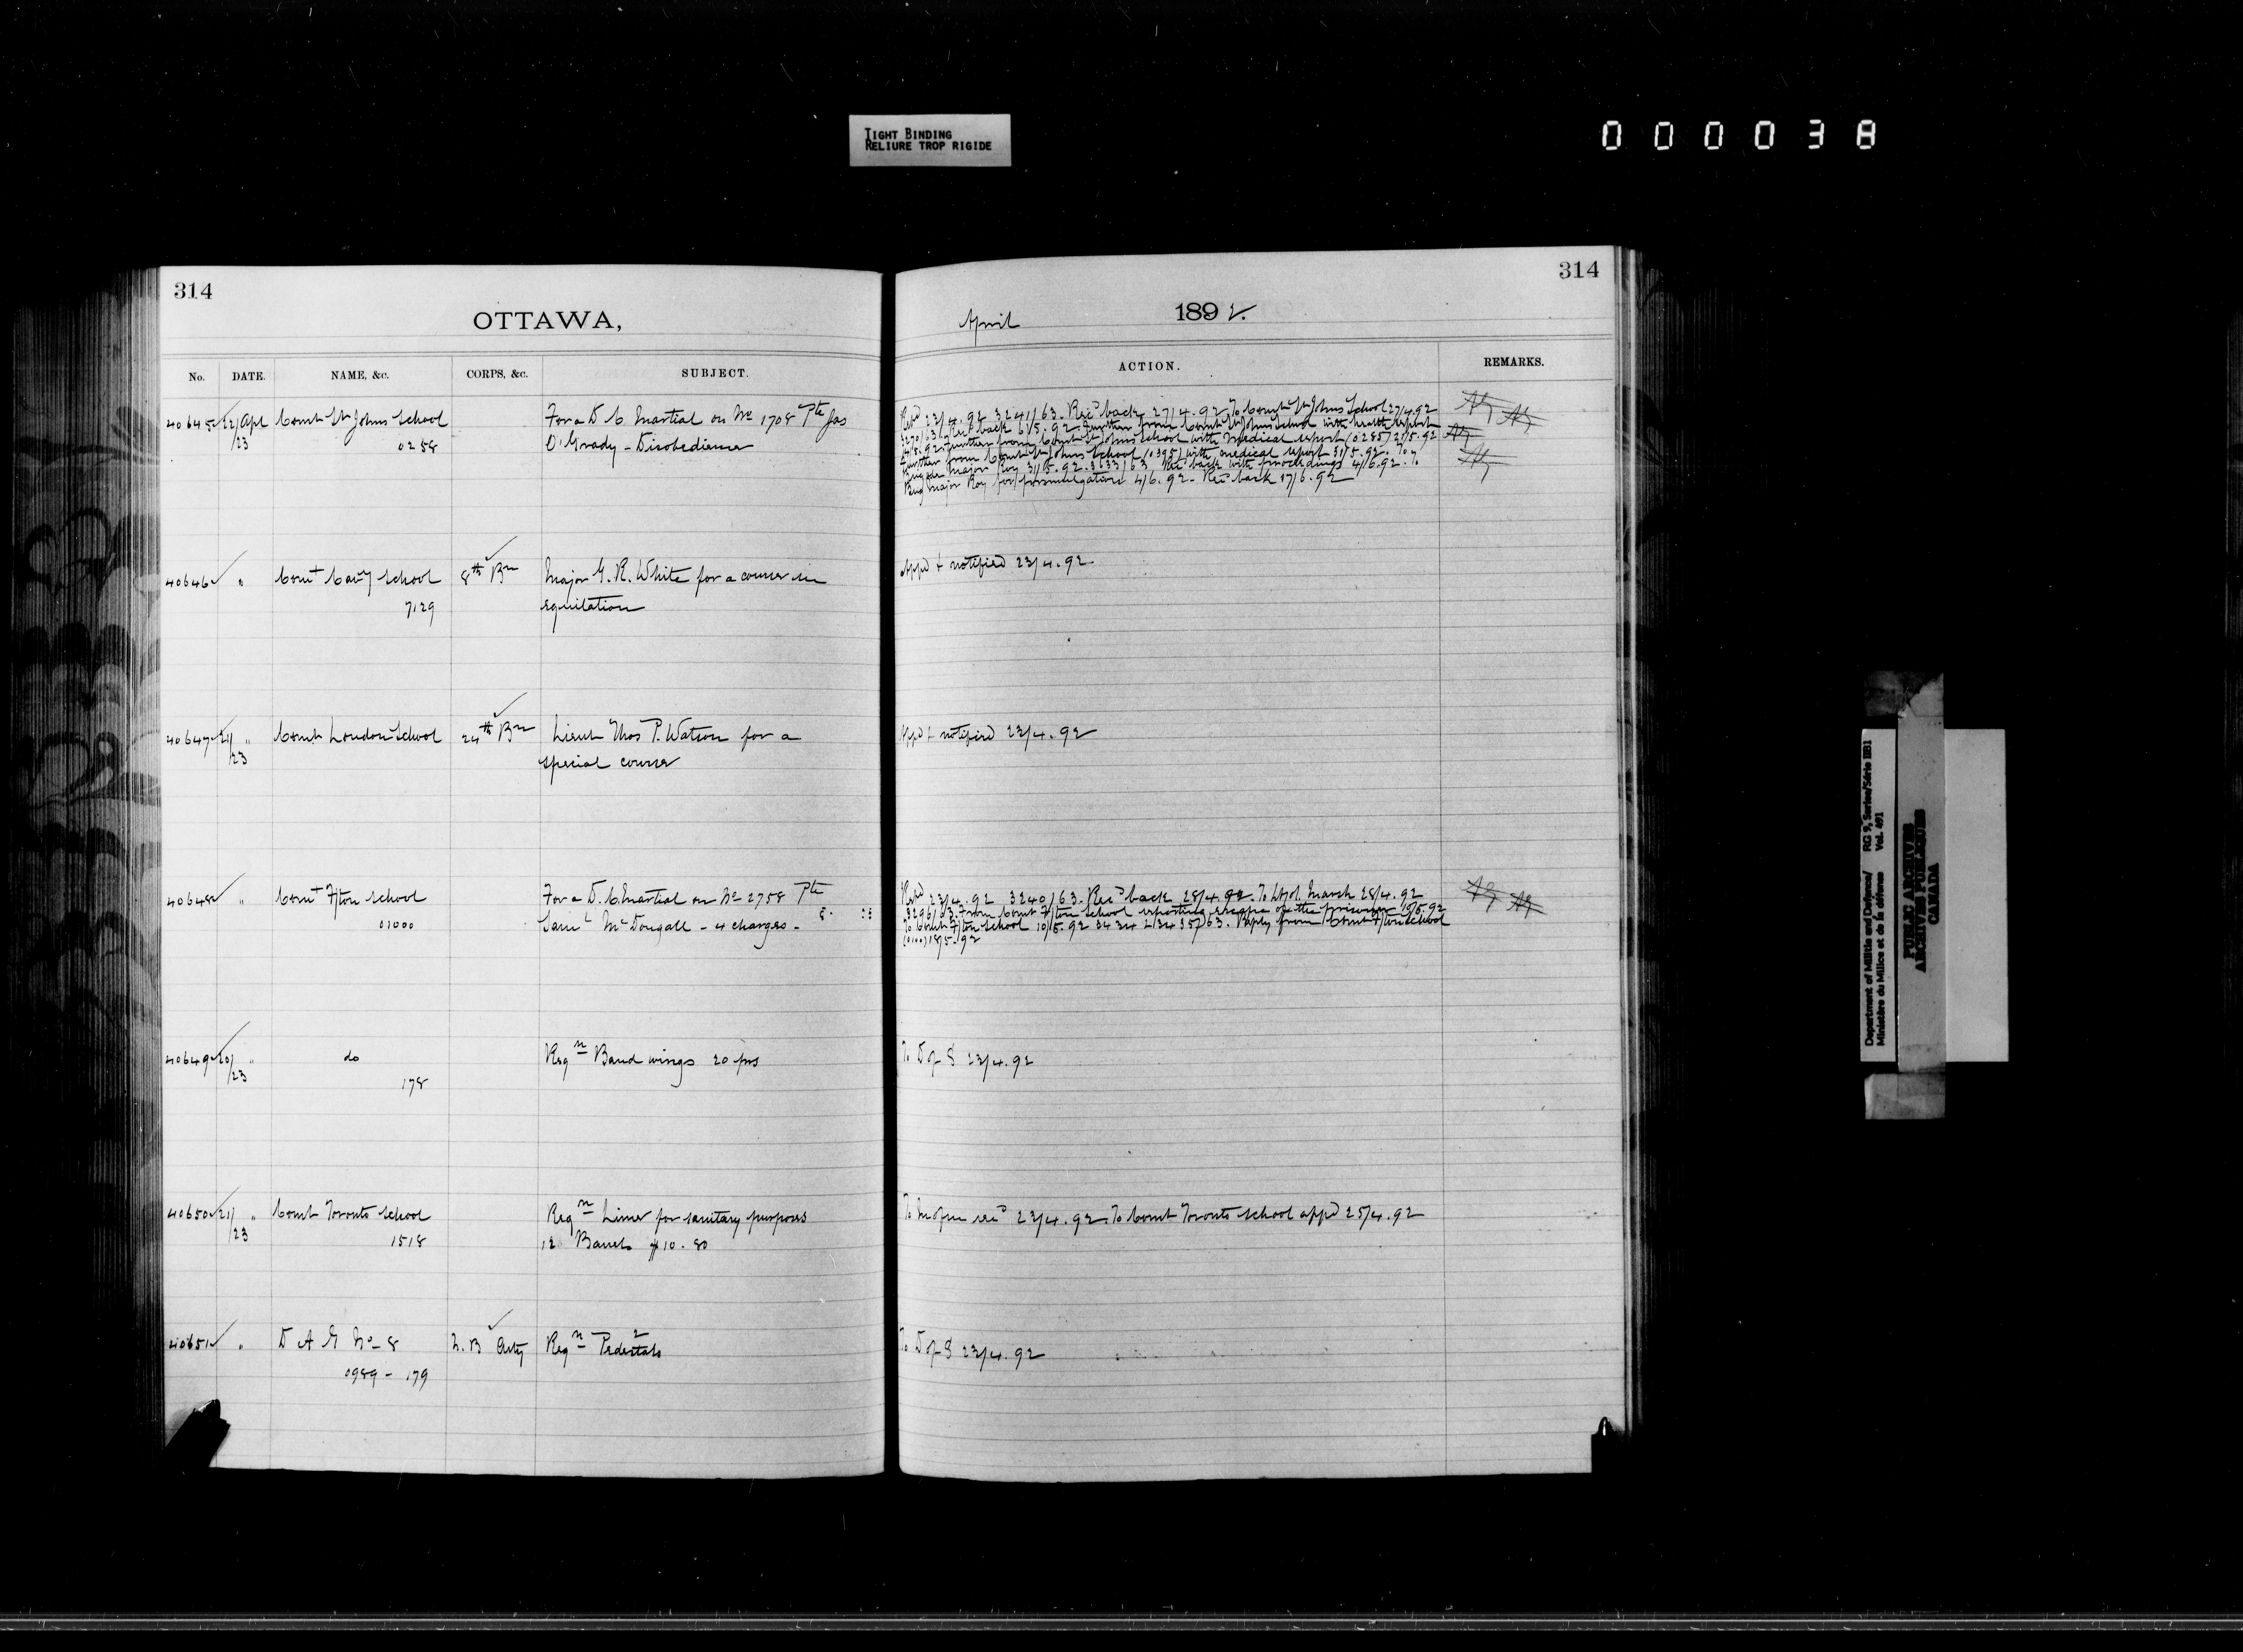 TIGHT BINDING
RELIURE TROP RIGIDE
000038
314
OTTAWA,
No. DATE. NAME, &c. CORPS, &c. SUBJECT.
40645 22/23 Apl Comt St Johns School For a D. C. Martial on No 1708 Pte Jas
0258 O'Grady - Disobedience
40646 " Comt Cavy School 8th Bn Major G. R. White for a course in
7129 equitation
40647 21/23 " Comt London School 24th Bn Lieut Thos P. Watson for a
special course
40648 " Comt F/ton School For a D. C. Martial on No 2758 Pte
01000 Saml McDougall - 4 charges -
40649 20/23 " do Reqn Band wings 20 prs
178
40650 21/23 " Comt Toronto School Reqn Lime for sanitary purposes
1518 12 Barrels $10.80
40651 " D A G No 8 N. B Arty Reqn Pedestals
0989 - 179
314
April 1892.
ACTION. REMARKS.
23/4.92 3241/63. Recd back 27/4.92 To Comt St Johns School 27/4.92
3270/63. Recd back 6/5.92. Further from Comt St Johns School with health report
Further from Comt St Johns School with medical report (0285) 21/5.92
Further from Comt St Johns School (0395) with medical report 31/5.92. To
Brigade Major Roy 31/5.92. 3633/63 Recd back with proceedings 4/6.92. To
Brig Major Roy for promulgation 4/6.92 - Recd back 17/6.92
Appd & notified 23/4.92
Appd & notified 23/4.92
23/4.92 3240/63. Recd back 28/4.92. To Lt Col. Maunsell 28/4.92
3296/63. From Comt F/ton School reporting escape of the prisoner 10/5.92
To Comt F/ton School 10/5.92 3434 & 3435/63. Reply from Comt F/ton School
(0100) 18/5.92
To D of S 23/4.92
23/4.92. To Comt Toronto School appd 25/4.92
To D of S 23/4.92
Department of Militia and Defence/ RG 9, Series/Série IIB1
Ministère du Milice et de la défence Vol. 491
PUBLIC ARCHIVES
ARCHIVES PUBLIQUES
CANADA